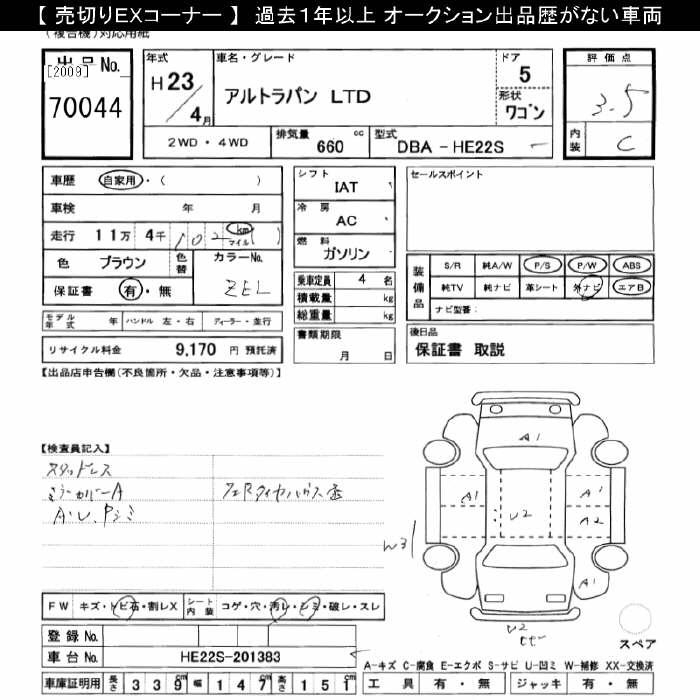 【 売切りEXコーナー 】 過去１年以上 オークション出品歴がない車両
(複合機)対応用紙
出品No.
[2009]
70044
年式
H23/4月
車名・グレード
アルトラパン LTD
ドア
5
形状
ワゴン
評価点
3.5
内装
C
2WD・4WD
排気量 660 cc
型式 DBA - HE22S
車歴 自家用・( )
車検 年 月
走行 11万 4千 102 km マイル ( )
色 ブラウン 色替 カラーNo. ZEL
保証書 有・無
モデル年式 年 ハンドル 左・右 ディーラー・並行
リサイクル料金 9,170 円 預託済
シフト
IAT
冷房
AC
燃料
ガソリン
乗車定員 4 名
積載量 kg
総重量 kg
書類期限
月 日
セールスポイント
装備品
S/R 純A/W P/S P/W ABS
純TV 純ナビ 革シート 外ナビ エアB
ナビ型番:
後日品
保証書 取説
【出品店申告欄(不良箇所・欠品・注意事項等)】
【検査員記入】
スタッドレス
ミラーカバーA
A・U、Pシミ
A1
A1
A1
A2
U2
W3
A1
U2
FW キズ・トビ石・割レX
シート内装 コゲ・穴・汚レ・シミ・破レ・スレ
登録No.
車台No. HE22S-201383
車庫証明用 長さ 339cm 幅 147cm 高さ 151cm
スペア
A-キズ C-腐食 E-エクボ S-サビ U-凹ミ W-補修 XX-交換済
工具 有・無 ジャッキ 有・無